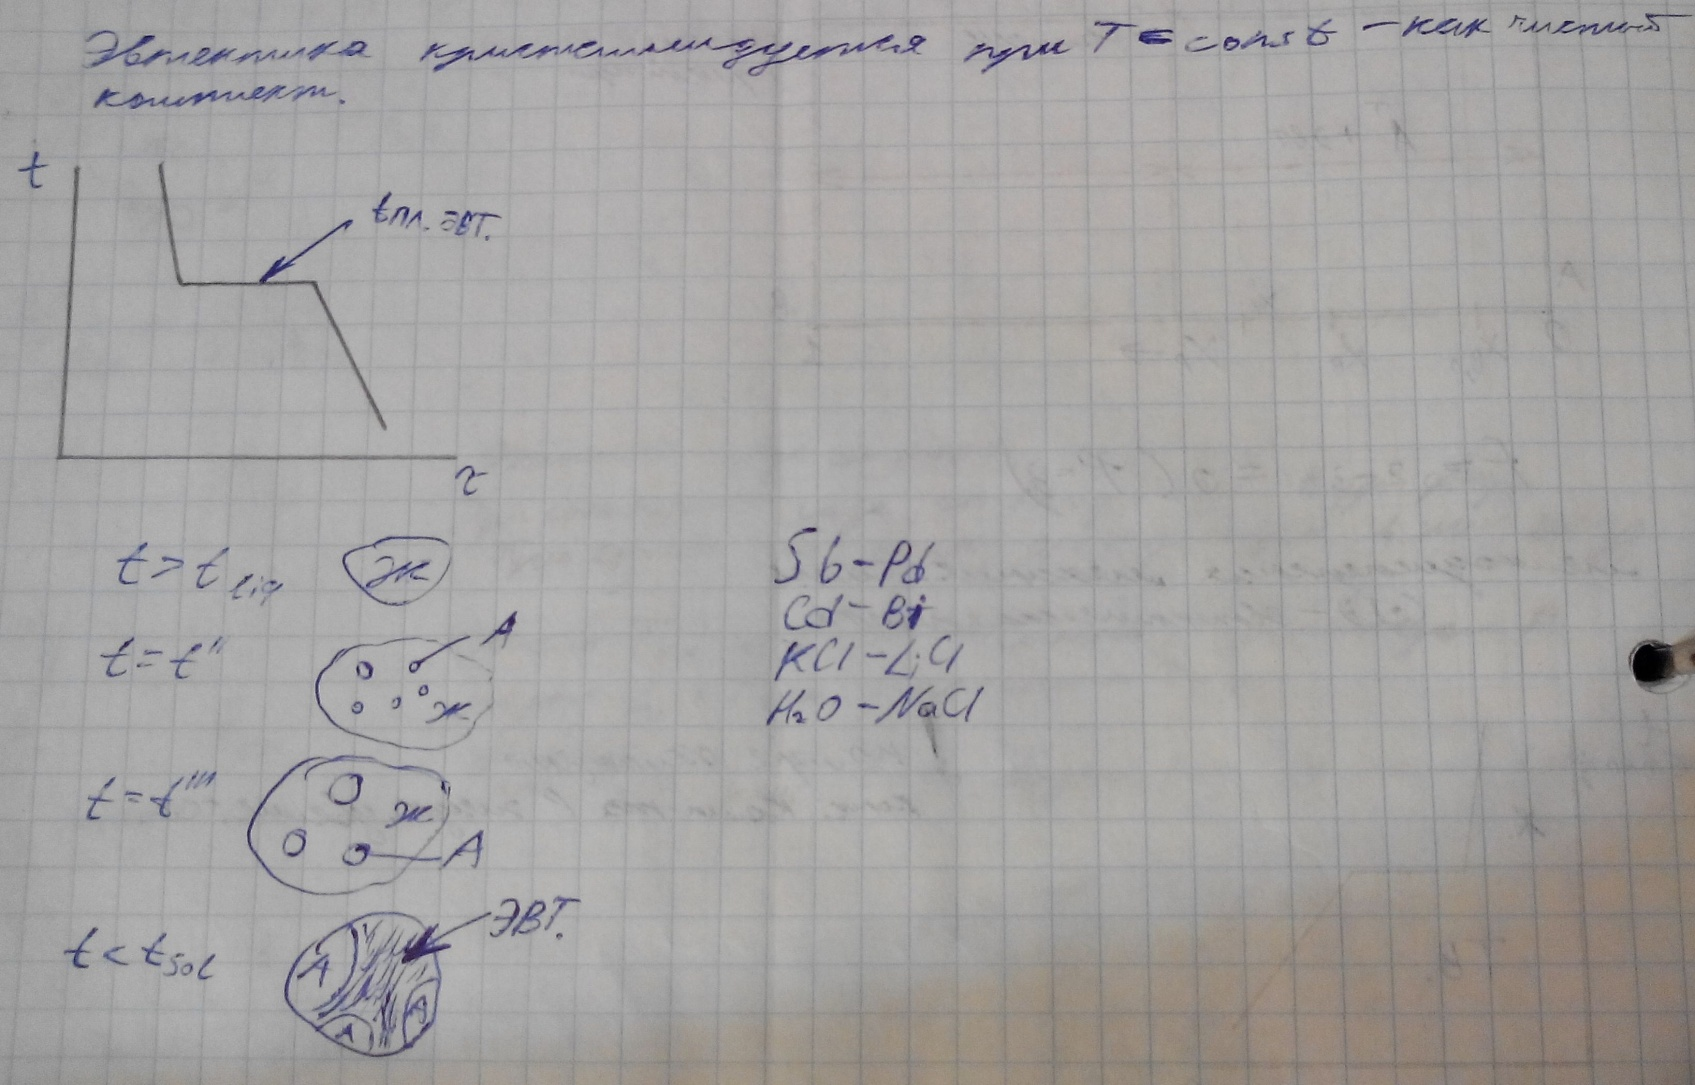 Эвтектика кристаллизуется при T = const – как чистый
компонент.
t
tпл. эвт.
τ
t > t liq
ж
t = t''
A
ж
t = t'''
ж
A
t < t sol
ЭВТ.
A
A
A
Sb – Pb
Cd – Bi
KCl – LiCl
H₂O – NaCl